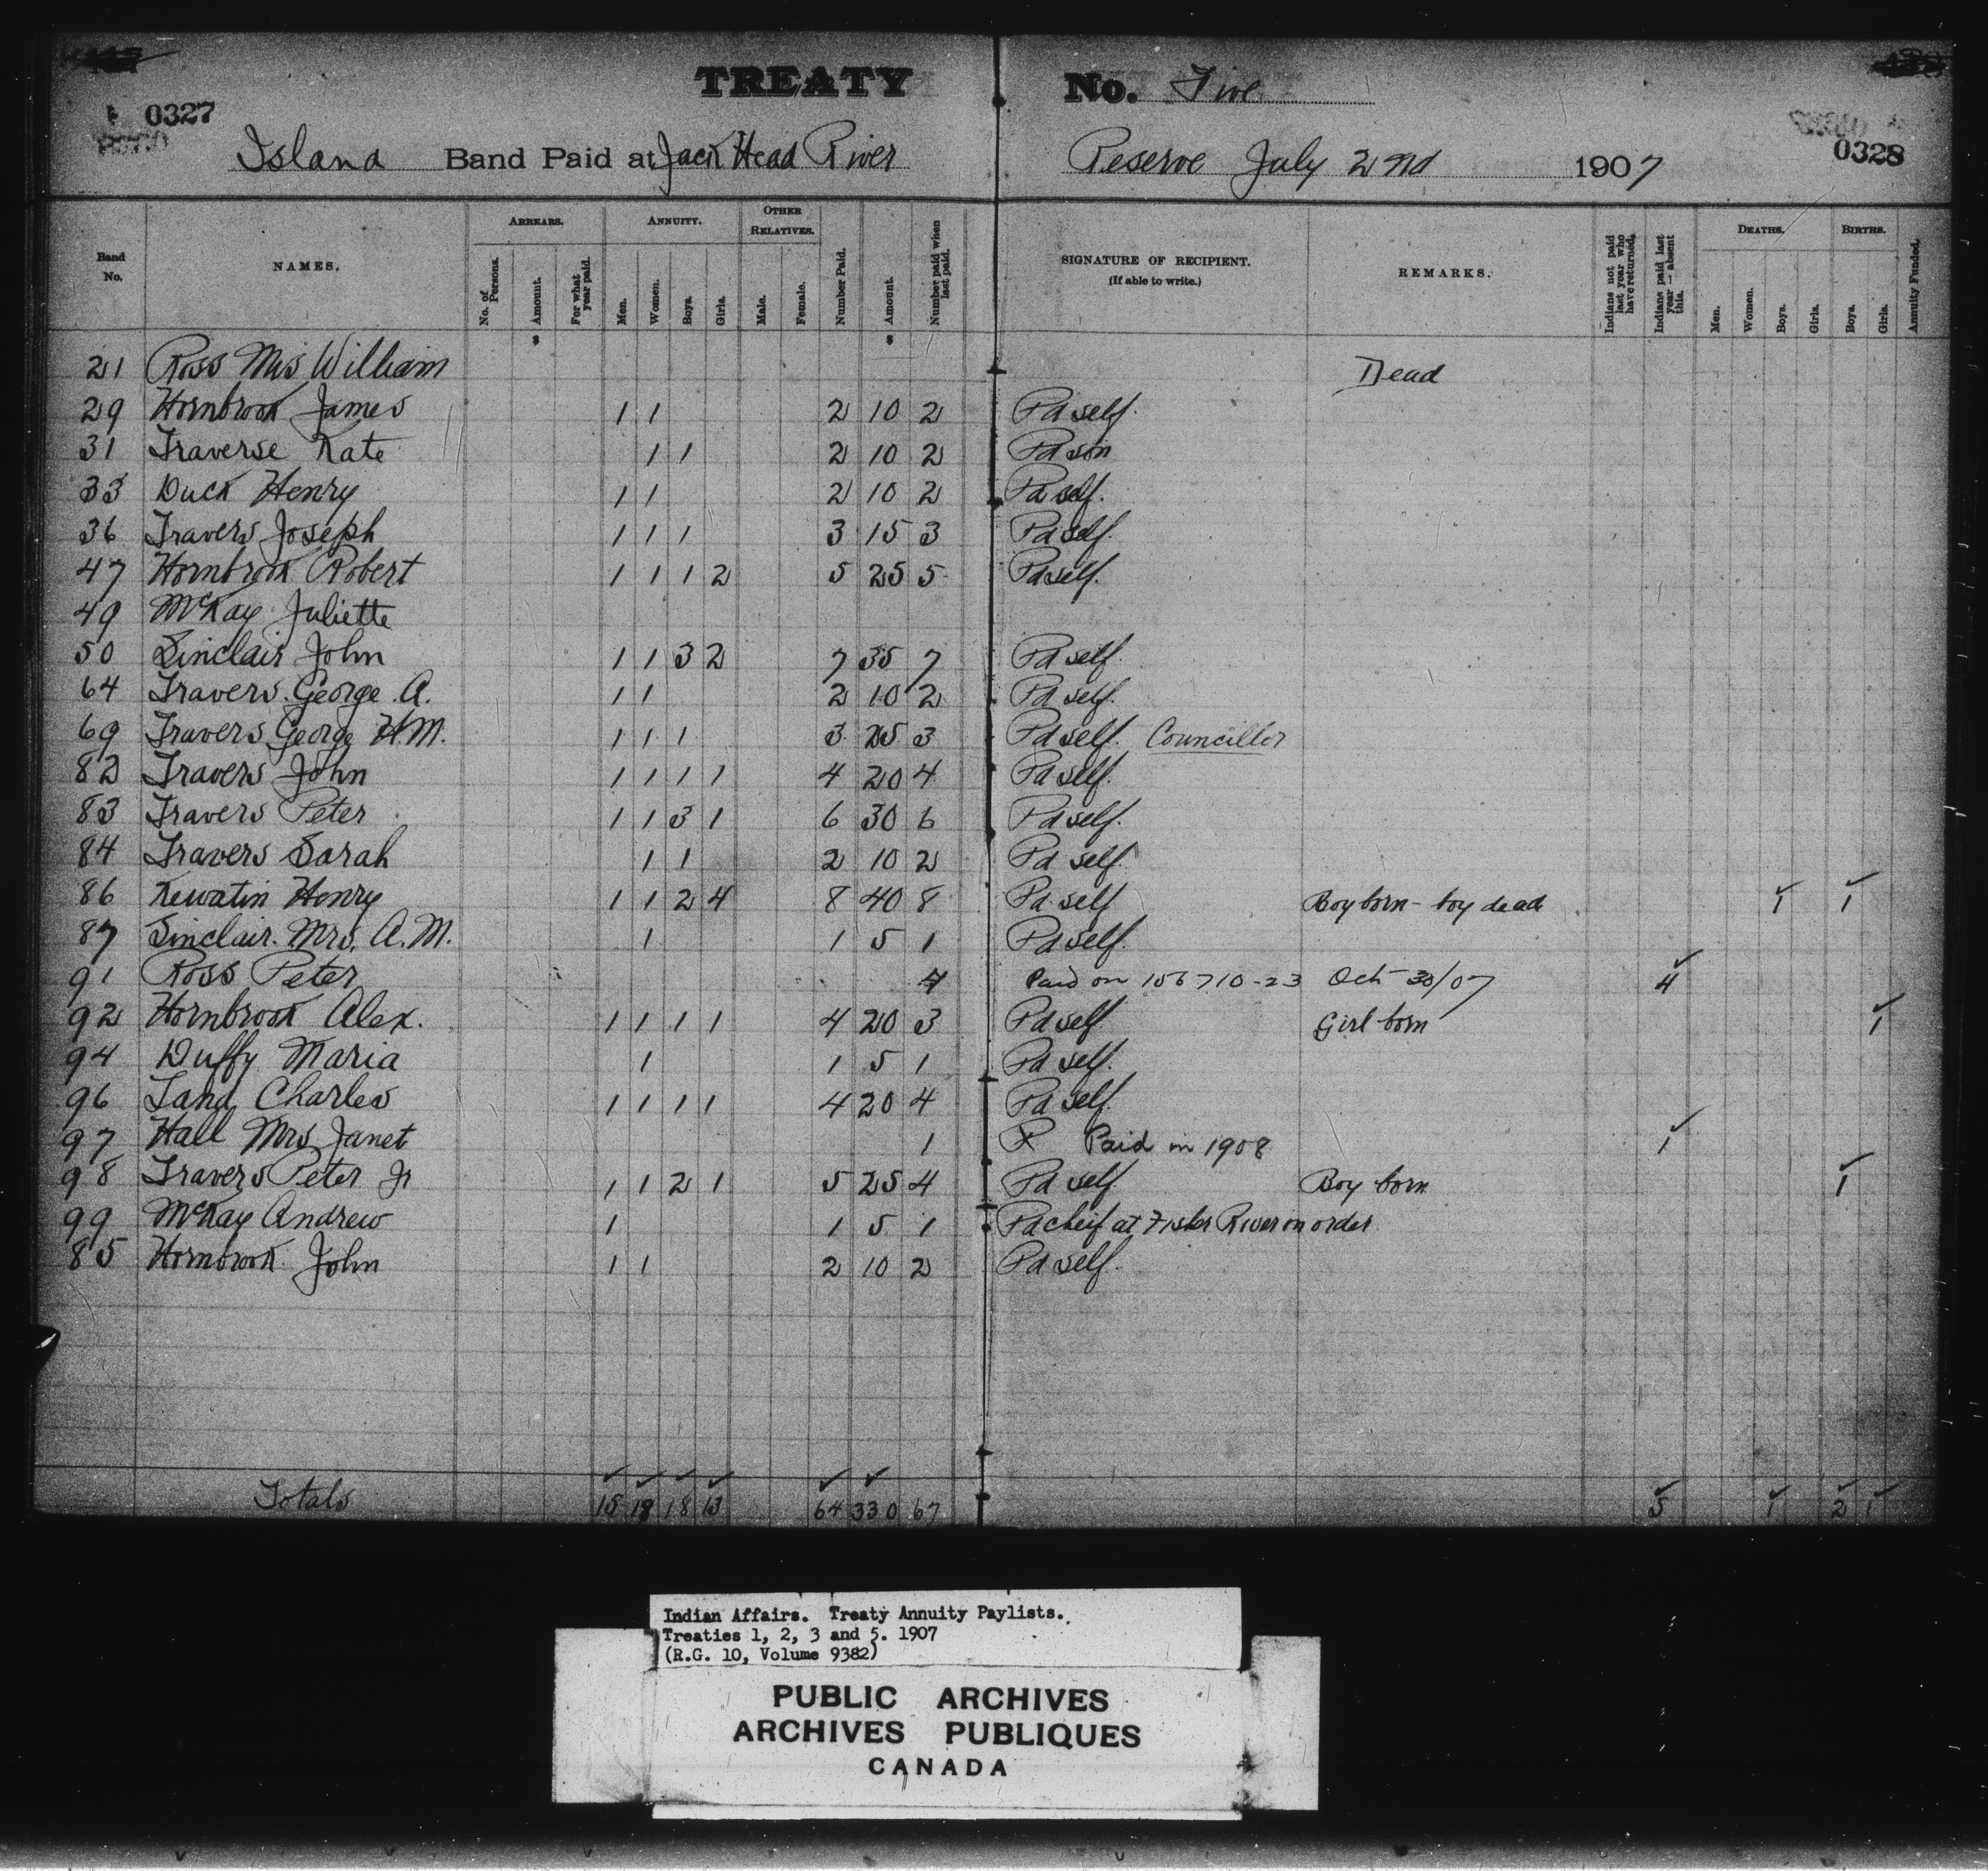 TREATY No. Five
0327
0328
Island Band Paid at Jack Head River Reserve July 2nd 1907
Band No. NAMES. ARREARS. No. of Persons. Amount. For what year paid. ANNUITY. Men. Women. Boys. Girls. OTHER RELATIVES. Male. Female. Number Paid. Amount. Number paid when last paid. SIGNATURE OF RECIPIENT. (If able to write.) REMARKS. Indians not paid last year who have returned. Indians paid last year — absent this. DEATHS. Men. Women. Boys. Girls. BIRTHS. Boys. Girls. Annuity Funded.
$ $
21 Ross Mrs William Dead
29 Hornbrook James 1 1 2 10 2 Pd self.
31 Traverse Kate 1 1 2 10 2 Pd son
33 Duck Henry 1 1 2 10 2 Pd self.
36 Travers Joseph 1 1 1 3 15 3 Pd self.
47 Hornbrook Robert 1 1 1 2 5 25 5 Pd self.
49 McKay Juliette
50 Sinclair John 1 1 3 2 7 35 7 Pd self.
64 Travers George A. 1 1 2 10 2 Pd self.
69 Travers George H.M. 1 1 1 3 25 3 Pd self. Councillor
82 Travers John 1 1 1 1 4 20 4 Pd self.
83 Travers Peter 1 1 3 1 6 30 6 Pd self.
84 Travers Sarah 1 1 2 10 2 Pd self.
86 Kewatin Henry 1 1 2 4 8 40 8 Pd self Boy born - boy dead 1 1
87 Sinclair. Mrs. A.M. 1 1 5 1 Pd self.
91 Ross Peter 4 Paid on 156710-23 Oct 30/07 4
92 Hornbrook Alex. 1 1 1 1 4 20 3 Pd self Girl born 1
94 Duffy Maria 1 1 5 1 Pd self.
96 Land Charles 1 1 1 1 4 20 4 Pd self.
97 Hall Mrs Janet 1 Paid in 1908 1
98 Travers Peter Jr 1 1 2 1 5 25 4 Pd self Boy born 1
99 McKay Andrew 1 1 5 1 Pd cheif at Fisher River on order
85 Hornbrook John 1 1 2 10 2 Pd self.
Totals 15 18 18 13 64 330 67 5 1 2 1
Indian Affairs. Treaty Annuity Paylists.
Treaties 1, 2, 3 and 5. 1907
(R.G. 10, Volume 9382)
PUBLIC ARCHIVES
ARCHIVES PUBLIQUES
CANADA